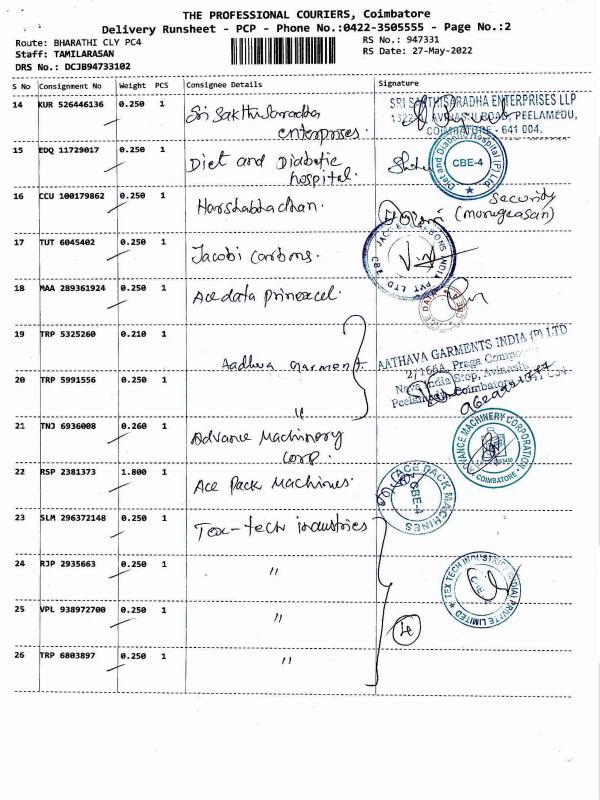 THE PROFESSIONAL COURIERS, Coimbatore
Delivery Runsheet - PCP - Phone No.:0422-3505555 - Page No.:2
Route: BHARATHI CLY PC4
RS No.: 947331
Staff: TAMILARASAN
RS Date: 27-May-2022
DRS No.: DCJB94733102
S No Consignment No Weight PCS Consignee Details Signature
14 KUR 526446136 0.250 1 Sri Sakthisaradha
enterprises.
SRI SAKTHISARADHA ENTERPRISES LLP
AVINASHI ROAD, PEELAMEDU,
COIMBATORE - 641 004.
15 EDQ 11729017 0.250 1 Diet and Diabetic
hospital.
Diet and Diabetic Hospital (P) Ltd
CBE-4
16 CCU 100179862 0.250 1 Harshabhadhan.
Security
(murugeasan)
17 TUT 6045402 0.250 1 Jacobi carbons.
JACOBI CARBONS INDIA PVT LTD CBE
18 MAA 289361924 0.250 1 Acedata prinexcel.
19 TRP 5325260 0.210 1 Aadhava garment
AATHAVA GARMENTS INDIA (P) LTD
2/166A, Praga
Nava India Stop, Avinashi
Peelamedu, Coimbatore
20 TRP 5991556 0.250 1 "
21 TNJ 6936008 0.260 1 Advance Machinery
Corp.
ADVANCE MACHINERY CORPORATION
COIMBATORE
22 RSP 2381373 1.800 1 Ace Pack Machines.
ACE PACK MACHINES
CBE-4
23 SLM 296372148 0.250 1 Tex-tech industries
24 RJP 2935663 0.250 1 "
TEX TECH INDUSTRIES (INDIA) PRIVATE LIMITED
CBE
25 VPL 938972700 0.250 1 "
4
26 TRP 6803897 0.250 1 "